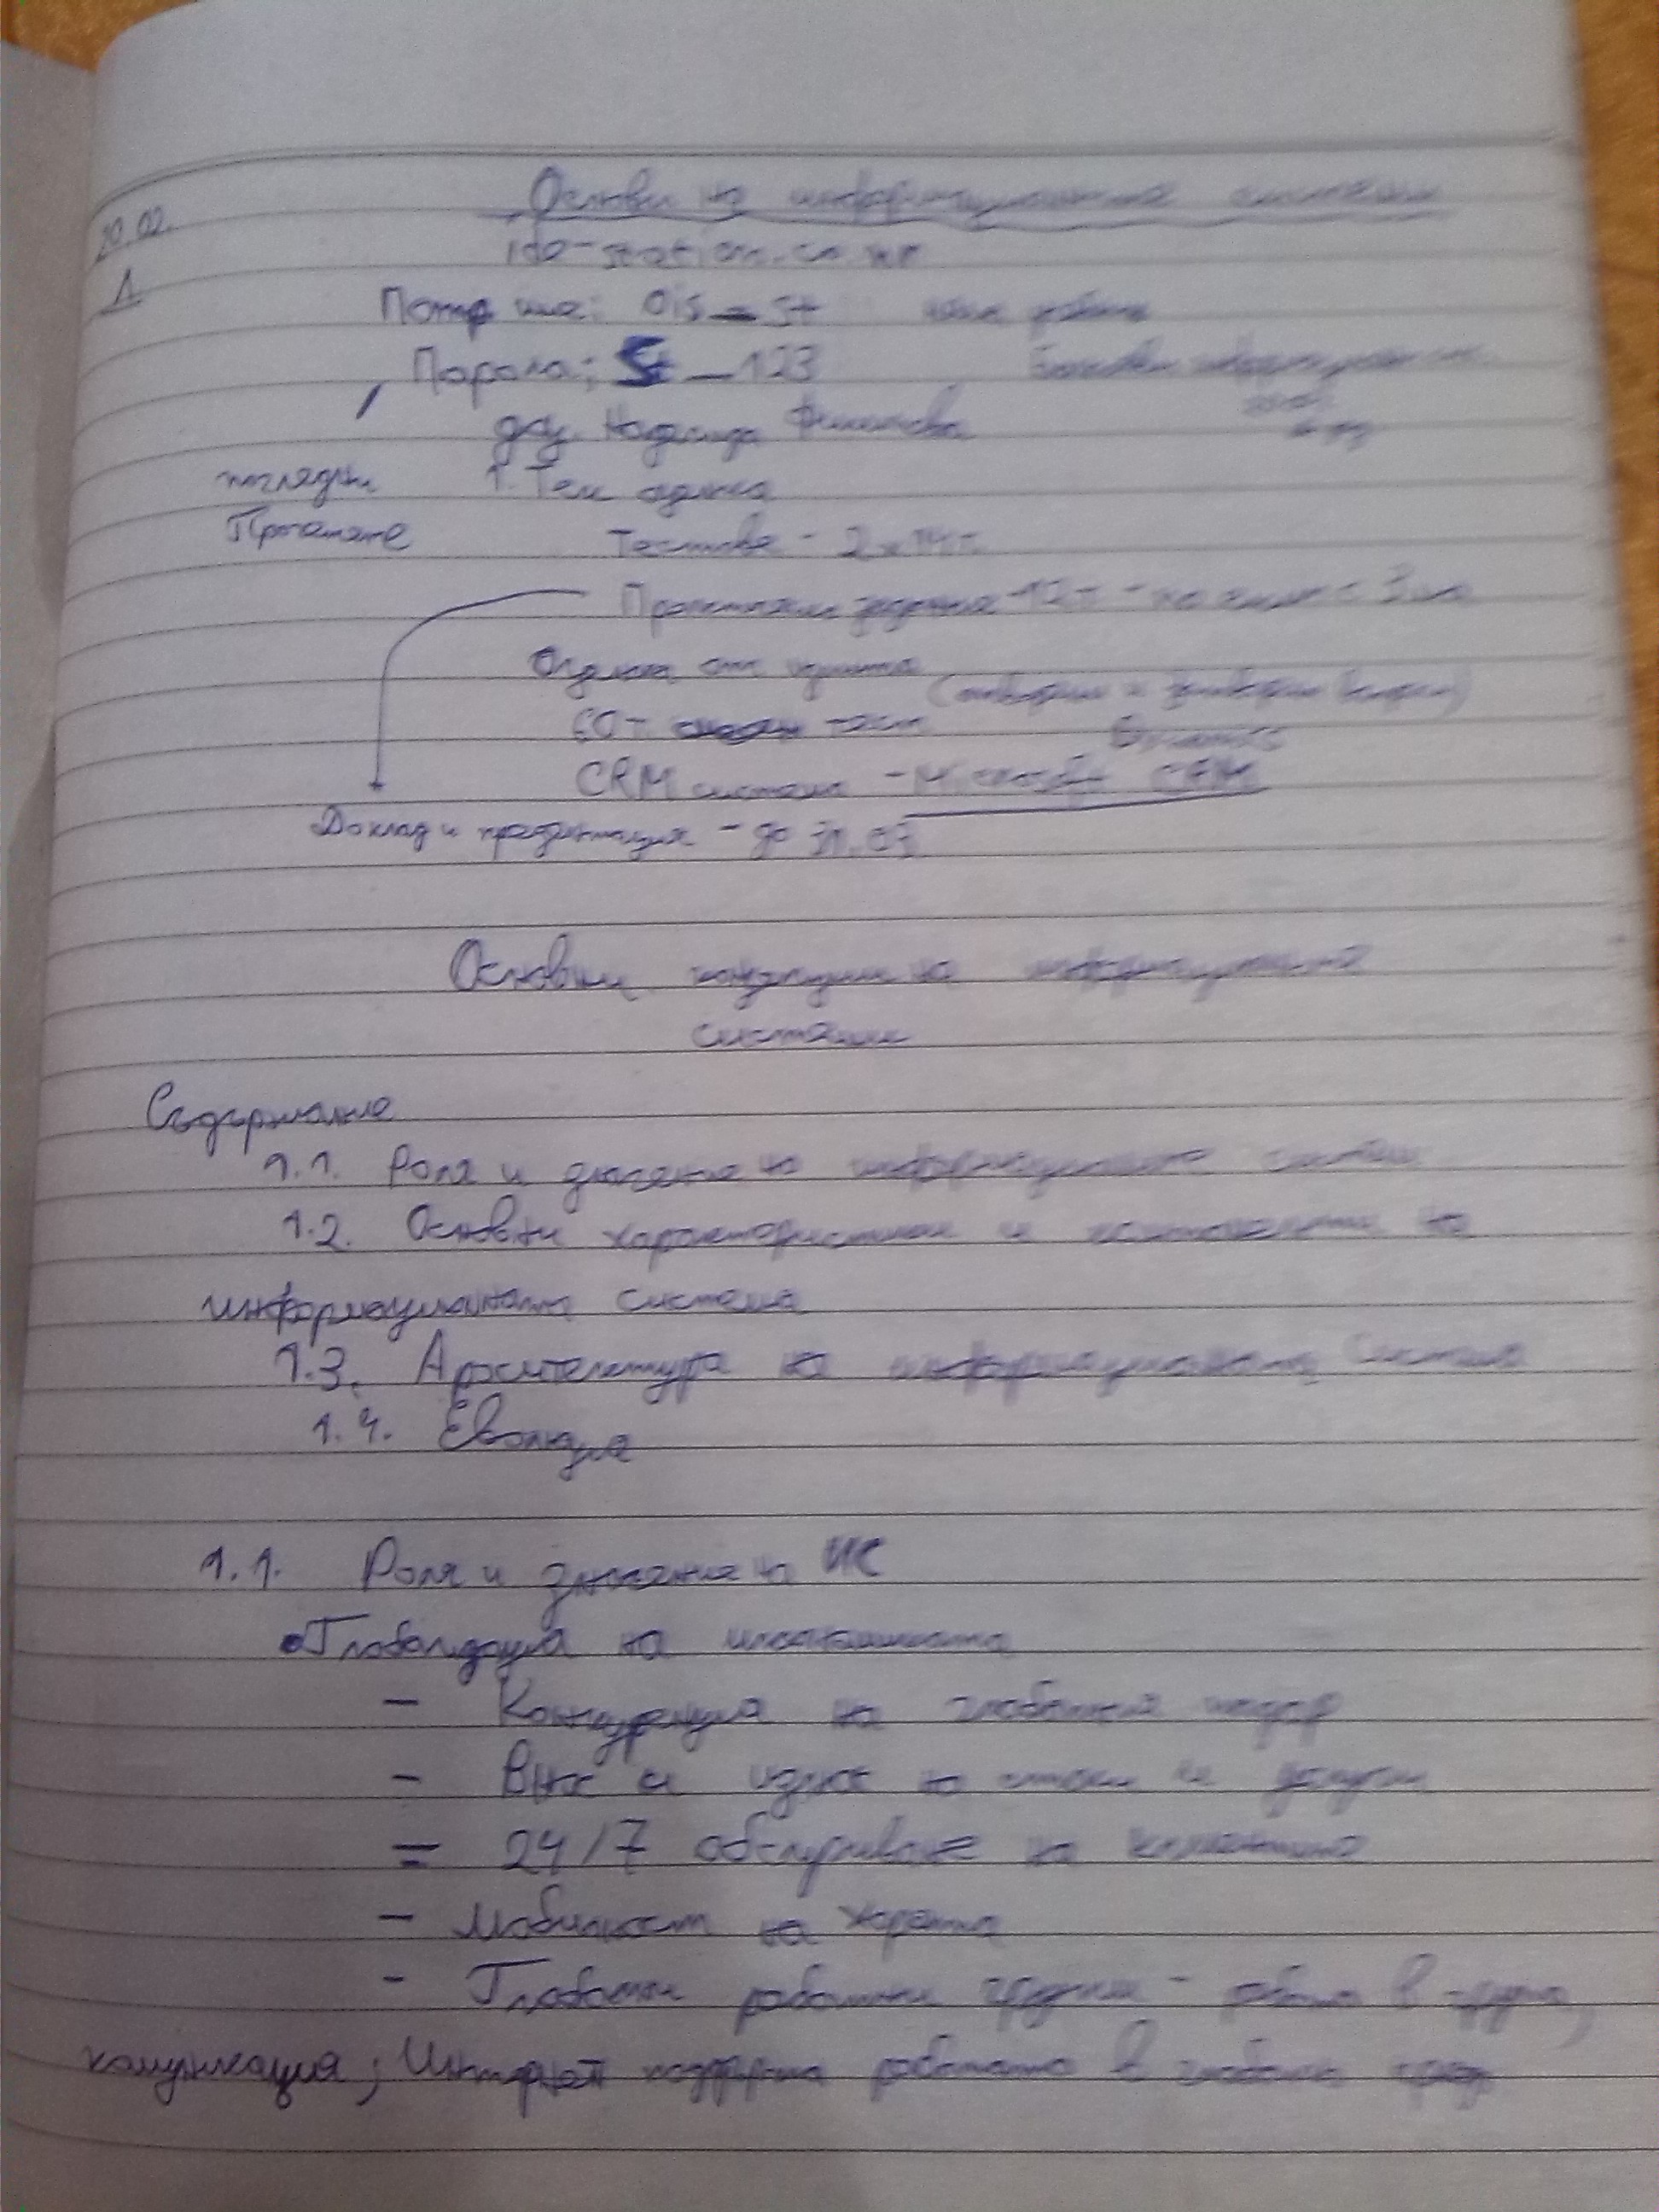 20.02. Основи на информационните системи
1
Потр име: Ois_St
Парола: St_123
доц. Надежда
погледни 1. Тек оценка
Протеляне Тестове - 2 x 14т.
Практически задания - 12т -
Оценка от изпита
60т. тест (отворени и затворени въпроси)
CRM система - Microsoft CRM
Доклад и презентация - до 31.03
Основни концепции на информационните
системи
Съдържание
1.1. Роля и значение на информационните системи
1.2. Основни характеристики и компоненти на
информационната система
1.3. Архитектура на информационната система
1.4. Еволюция
1.1. Роля и значение на ИС
• Глобализация на икономиката
- Конкуренция на глобалния пазар
- Внос и износ на стоки и услуги
- 24/7 обслужване на клиентите
- Мобилност на хората
- Глобални работни групи - работа в група,
комуникация; Интернет поддържа работата в глобална среда